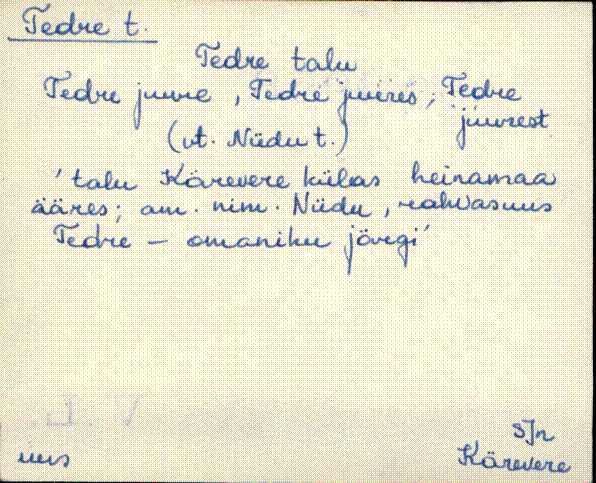 Tedre t.
Tedre talu
Tedre juure, Tedre juures, Tedre
juurest
(vt. Niidu t.)
'talu Kärevere külas heinamaa
ääres; am. nim. Niidu, rahvasuus
Tedre – omaniku järgi'
SJn
uus
Kärevere